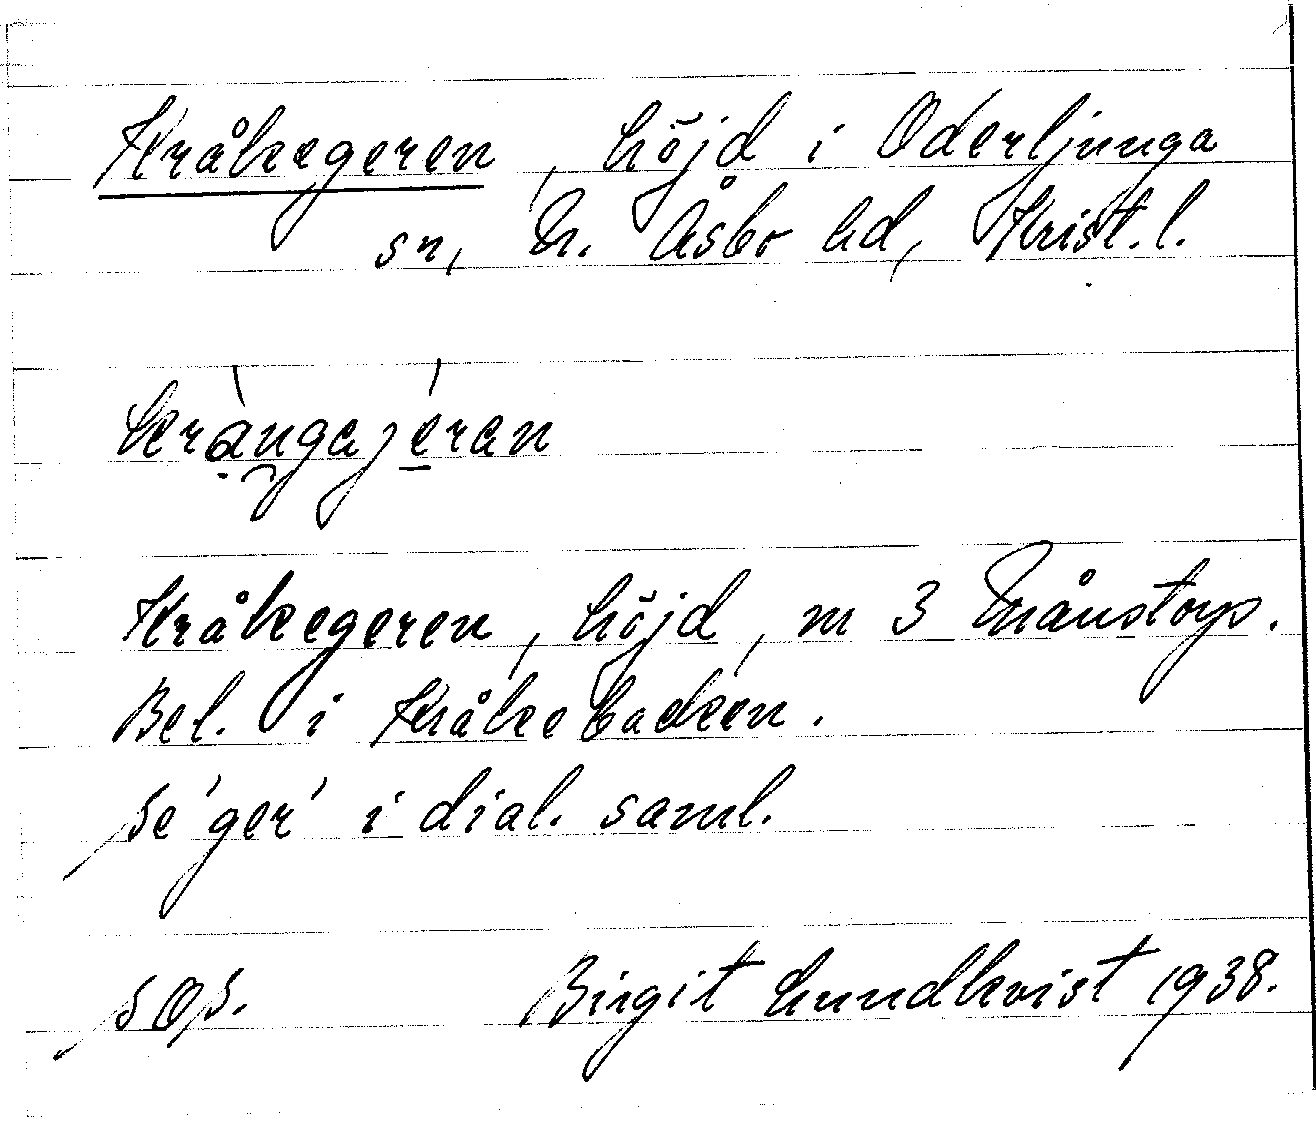 Kråkegeren, höjd i Oderljunga
sn, N. Åsbo hd, Krist. l.
krångajeran
Kråkegeren, höjd, m 3 Månstorp.
Bel. i Kråkebacken.
Se 'ger' i dial. saml.
SOS. Birgit Lundkvist 1938.